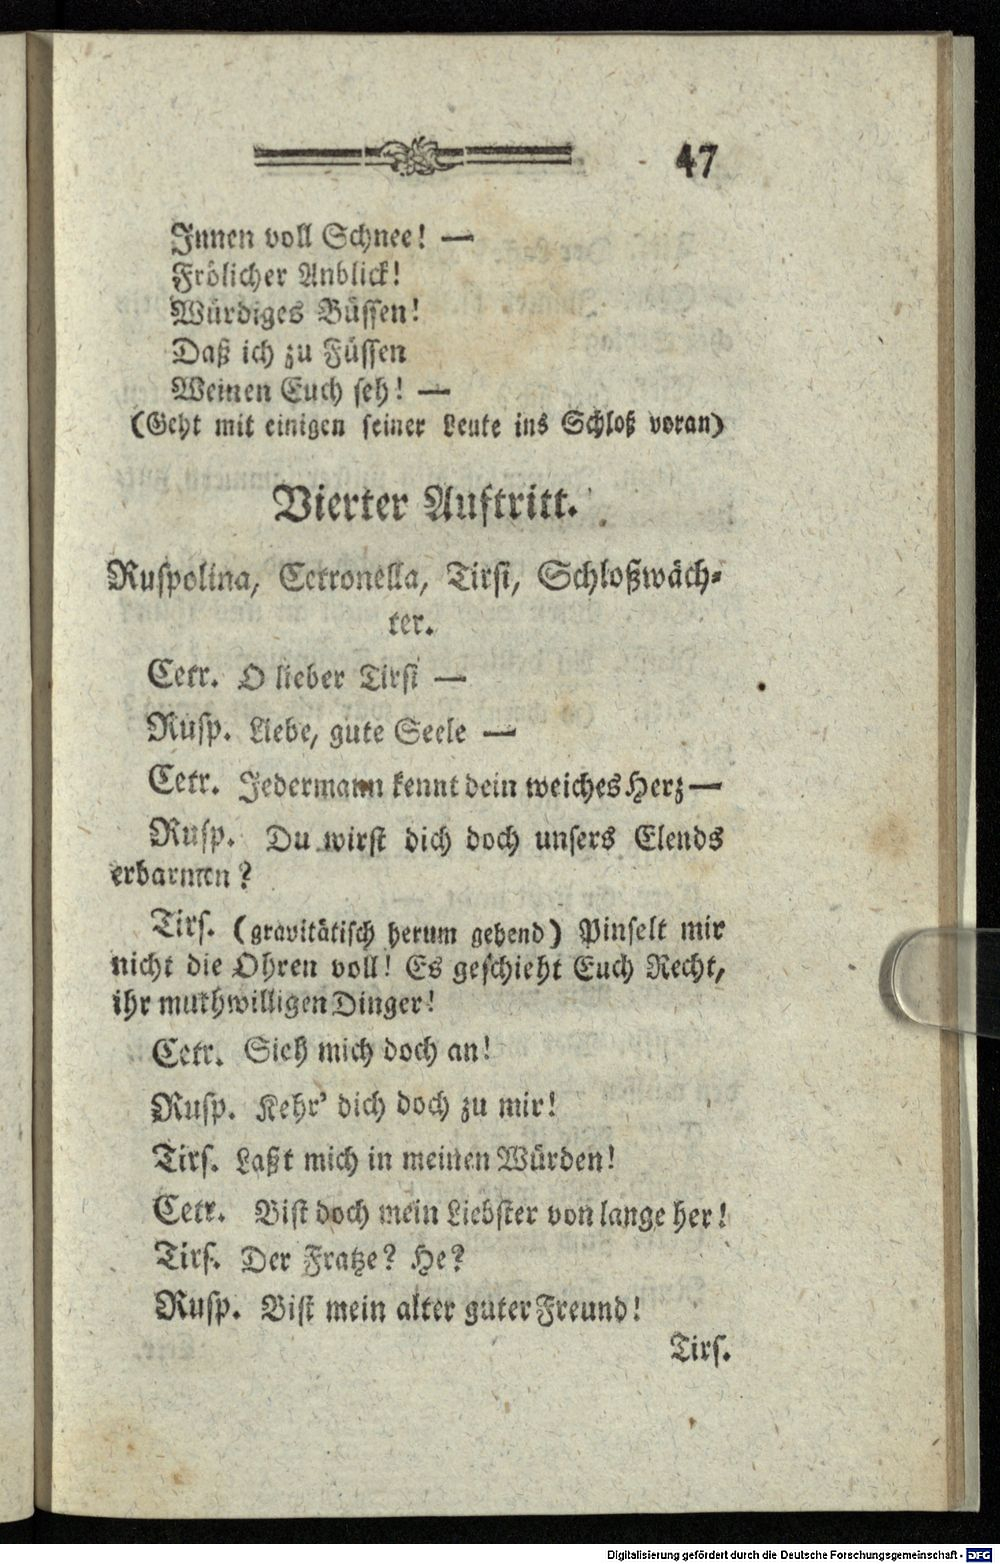 47
Innen voll Schnee! —
Frölicher Anblick!
Würdiges Büssen!
Daß ich zu Füssen
Weinen Euch seh! —
(Geht mit einigen seiner Leute ins Schloß voran)
Vierter Auftritt.
Ruspolina, Cetronella, Tirsi, Schloßwäch-
ter.
Cetr. O lieber Tirsi —
Rusp. Liebe, gute Seele —
Cetr. Jedermann kennt dein weiches Herz —
Rusp. Du wirst dich doch unsers Elends
erbarmen?
Tirs. (gravitätisch herum gehend) Pinselt mir
nicht die Ohren voll! Es geschieht Euch Recht,
ihr muthwilligen Dinger!
Cetr. Sieh mich doch an!
Rusp. Kehr' dich doch zu mir!
Tirs. Laßt mich in meinen Würden!
Cetr. Bist doch mein Liebster von lange her!
Tirs. Der Fratze? He?
Rusp. Bist mein alter guter Freund!
Tirs.
Digitalisierung gefördert durch die Deutsche Forschungsgemeinschaft - DFG